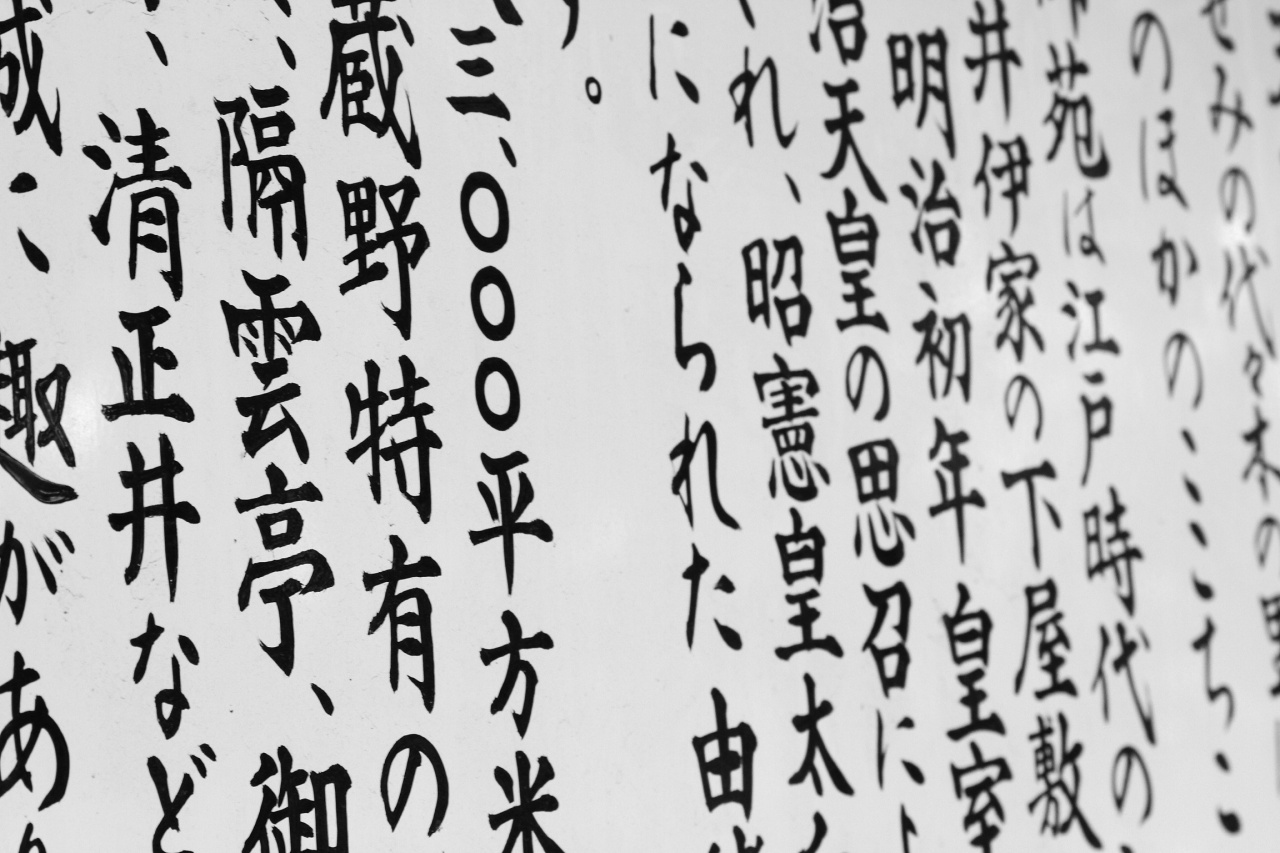 せみの代々木の野
のほかの・・・・ち・・
苑は江戸時代の
井伊家の下屋敷
明治初年皇室
治天皇の思召に
れ、昭憲皇太
になられた由
。
三、〇〇〇平方米
蔵野特有の
、隔雲亭、御
、清正井など
成・、趣があり